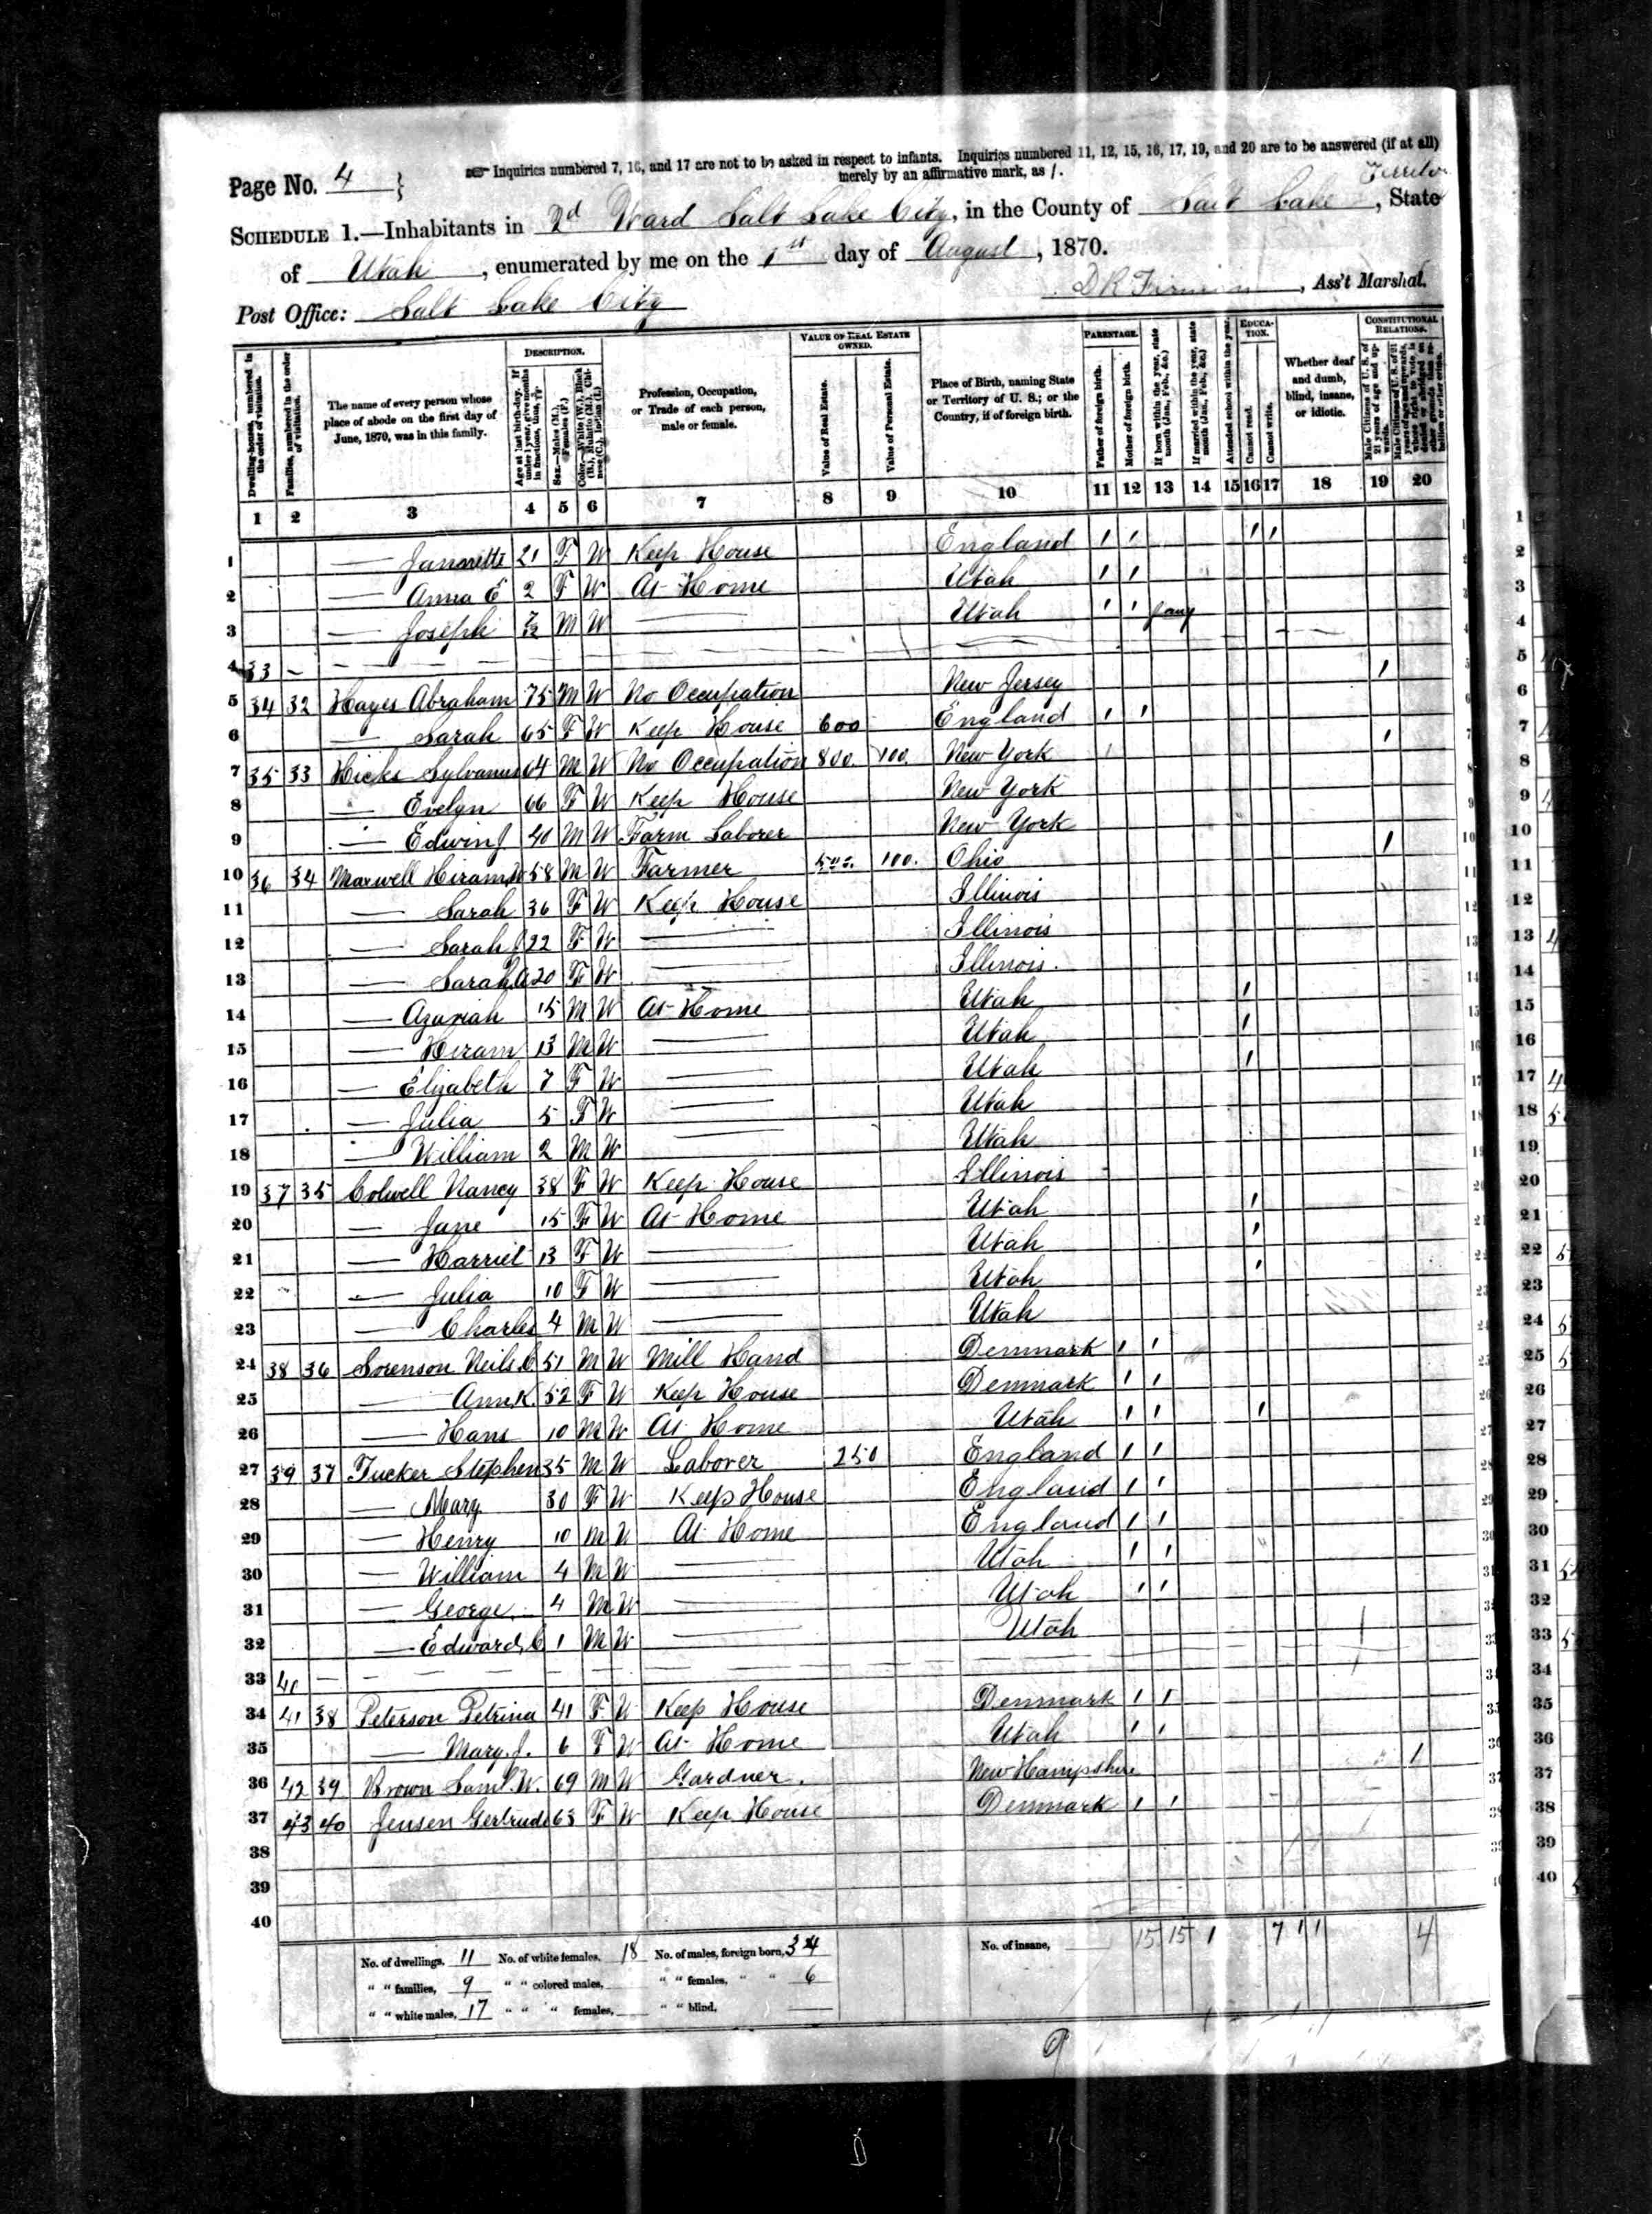 Page No. 4 }
☞ Inquiries numbered 7, 16, and 17 are not to be asked in respect to infants. Inquiries numbered 11, 12, 15, 16, 17, 19, and 20 are to be answered (if at all)
merely by an affirmative mark, as /.
SCHEDULE 1.—Inhabitants in 2d Ward Salt Lake City, in the County of Salt Lake, State
of Utah, enumerated by me on the 1st day of August, 1870.
Post Office: Salt Lake City
Ass't Marshal.
Dwelling-houses, numbered in the order of visitation.
Families, numbered in the order of visitation.
The name of every person whose place of abode on the first day of June, 1870, was in this family.
DESCRIPTION.
Age at last birth-day. If under 1 year, give months in fractions, thus, 3/12
Sex.—Males (M.), Females (F.)
Color.—White (W.), Black (B.), Mulatto (M.), Chinese (C.), Indian (I.)
Profession, Occupation, or Trade of each person, male or female.
VALUE OF REAL ESTATE OWNED.
Value of Real Estate.
Value of Personal Estate.
Place of Birth, naming State or Territory of U. S.; or the Country, if of foreign birth.
PARENTAGE.
Father of foreign birth.
Mother of foreign birth.
If born within the year, state month (Jan., Feb., &c.)
If married within the year, state month (Jan., Feb., &c.)
EDUCATION.
Attended school within the year.
Cannot read.
Cannot write.
Whether deaf and dumb, blind, insane, or idiotic.
CONSTITUTIONAL RELATIONS.
Male Citizens of U. S. of 21 years of age and upwards.
1 2 3 4 5 6 7 8 9 10 11 12 13 14 15 16 17 18 19 20
1 — 21 F W Keep House England / / / /
2 — Anna E 2 F W At Home Utah / /
3 — Joseph M W — Utah / /
4 33 — — — —
5 34 32 Hayes Abraham 75 M W No Occupation New Jersey /
6 — Sarah 65 F W Keep House 600 England / /
7 35 33 Hicks Sylvanus 64 M W No Occupation 800. 100. New York / /
8 — Evelyn 66 F W Keep House New York
9 — Edwin J. 40 M W Farm Laborer New York
10 36 34 Maxwell Hiram W 58 M W Farmer 500. 100. Ohio /
11 — Sarah 36 F W Keep House Illinois
12 — Sarah J 22 F W — Illinois
13 — Sarah A 20 F W — Illinois.
14 — Azariah 15 M W At Home Utah /
15 — Hiram 13 M W — Utah /
16 — Elizabeth 7 F W — Utah /
17 — Julia 5 F W — Utah
18 — William 2 M W — Utah
19 37 35 Colwell Nancy 38 F W Keep House Illinois
20 — Jane 15 F W At Home Utah /
21 — Harriet 13 F W — Utah /
22 — Julia 10 F W — Utah /
23 — Charles 4 M W — Utah
24 38 36 Sorenson Neils C. 51 M W Mill Hand Denmark / /
25 — Ann K. 52 F W Keep House Denmark / /
26 — Hans 10 M W At Home Utah / / /
27 39 37 Tucker Stephen 35 M W Laborer 250 England / /
28 — Mary 30 F W Keep House England / /
29 — Henry 10 M W At Home England / /
30 — William 4 M W — Utah / /
31 — George 4 M W — Utah / /
32 — Edward C 1 M W — Utah
33 40 — — — —
34 41 38 Peterson Petrina 41 F W Keep House Denmark / /
35 — Mary J. 6 F W At Home Utah / /
36 42 39 Brown Saml. W. 69 M W Gardner. New Hampshire /
37 43 40 Jensen Gertrude 63 F W Keep House Denmark / /
38
39
40
No. of dwellings, 11 No. of white females, 18 No. of males, foreign born, 34 No. of insane, 15 15 1 7 1 1 4
" " families, 9 " " colored males, " " females, " " 6
" " white males, 17 " " " females, " " blind, —